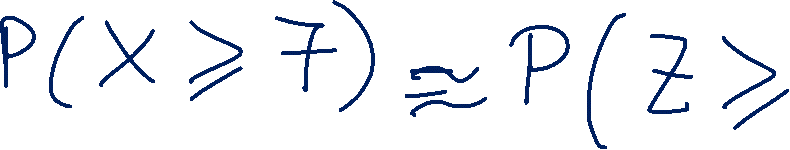 P(X ⩾ 7) ≊ P(Z ⩾